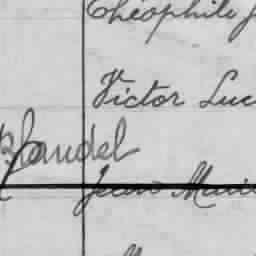 Théophile
Victor Luc
Blandel
Jean Marie